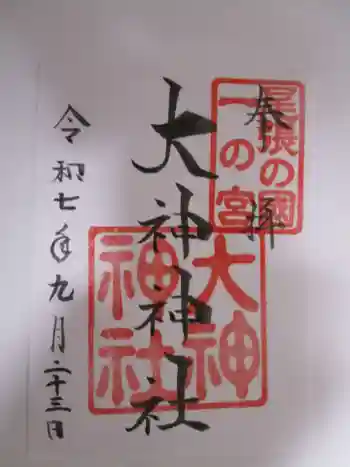 奉拝
尾張の国
一の宮
大神神社
大神
神社
令和七年九月二十三日